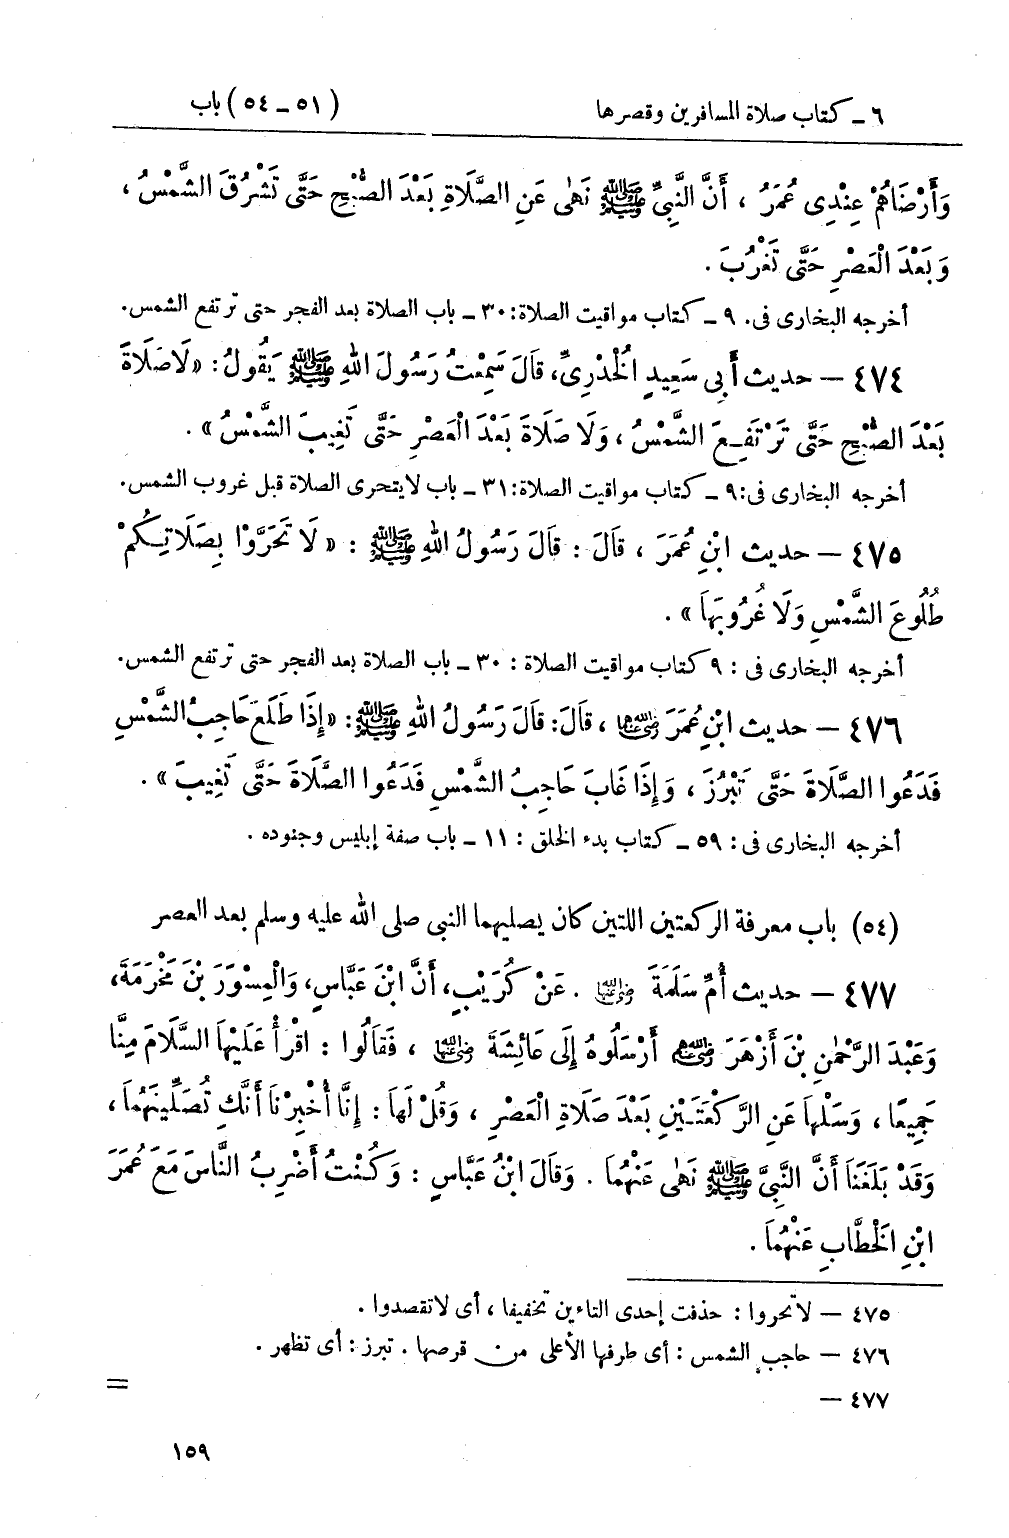 ٦ - كتاب صلاة المسافرين وقصرها
(٥١ - ٥٤) باب
وَأَرْضَاهُمْ عِنْدِى عُمَرُ ، أَنَّ النَّبِىَّ ﷺ نَهٰى عَنِ الصَّلَاةِ بَعْدَ الصُّبْحِ حَتَّى تَشْرُقَ الشَّمْسُ ،
وَبَعْدَ الْعَصْرِ حَتَّى تَغْرُبَ .
أخرجه البخارى فى. ٩ - كتاب مواقيت الصلاة: ٣٠ - باب الصلاة بعد الفجر حتى ترتفع الشمس.
٤٧٤ - حديث أَبِى سَعِيدٍ الْخُدْرِىِّ، قَالَ سَمِعْتُ رَسُولَ اللهِ ﷺ يَقُولُ: «لَا صَلَاةَ
بَعْدَ الصُّبْحِ حَتَّى تَرْتَفِعَ الشَّمْسُ ، وَلَا صَلَاةَ بَعْدَ الْعَصْرِ حَتَّى تَغِيبَ الشَّمْسُ» .
أخرجه البخارى فى: ٩ - كتاب مواقيت الصلاة: ٣١ - باب لا يتحرى الصلاة قبل غروب الشمس.
٤٧٥ - حديث ابْنِ عُمَرَ ، قَالَ : قَالَ رَسُولُ اللهِ ﷺ : « لَا تَحَرَّوْا بِصَلَاتِكُمْ
طُلُوعَ الشَّمْسِ وَلَا غُرُوبَهَا » .
أخرجه البخارى فى : ٩ كتاب مواقيت الصلاة : ٣٠ - باب الصلاة بعد الفجر حتى ترتفع الشمس.
٤٧٦ - حديث ابْنِ عُمَرَ رضي الله عنهما ، قَالَ: قَالَ رَسُولُ اللهِ ﷺ: «إِذَا طَلَعَ حَاجِبُ الشَّمْسِ
فَدَعُوا الصَّلَاةَ حَتَّى تَبْرُزَ ، وَإِذَا غَابَ حَاجِبُ الشَّمْسِ فَدَعُوا الصَّلَاةَ حَتَّى تَغِيبَ » .
أخرجه البخارى فى: ٥٩ - كتاب بدء الخلق : ١١ - باب صفة إبليس وجنوده .
(٥٤) باب معرفة الركعتين اللتين كان يصليهما النبى صلى الله عليه وسلم بعد العصر
٤٧٧ - حديث أُمِّ سَلَمَةَ رضي الله عنها . عَنْ كُرَيْبٍ، أَنَّ ابْنَ عَبَّاسٍ، وَالْمِسْوَرَ بْنَ مَخْرَمَةَ،
وَعَبْدَ الرَّحْمٰنِ بْنَ أَزْهَرَ رضي الله عنهم أَرْسَلُوهُ إِلَى عَائِشَةَ رضي الله عنها ، فَقَالُوا : اقْرَأْ عَلَيْهَا السَّلَامَ مِنَّا
جَمِيعًا ، وَسَلْهَا عَنِ الرَّكْعَتَيْنِ بَعْدَ صَلَاةِ الْعَصْرِ ، وَقُلْ لَهَا : إِنَّا أُخْبِرْنَا أَنَّكِ تُصَلِّينَهُمَا ،
وَقَدْ بَلَغَنَا أَنَّ النَّبِىَّ ﷺ نَهٰى عَنْهُمَا . وَقَالَ ابْنُ عَبَّاسٍ : وَكُنْتُ أَضْرِبُ النَّاسَ مَعَ عُمَرَ
ابْنِ الْخَطَّابِ عَنْهُمَا .
٤٧٥ - لا تحروا : حذفت إحدى التاءين تخفيفا ، أى لا تقصدوا .
٤٧٦ - حاجب الشمس : أى طرفها الأعلى من قرصها . تبرز : أى تظهر .
٤٧٧ -
=
١٥٩